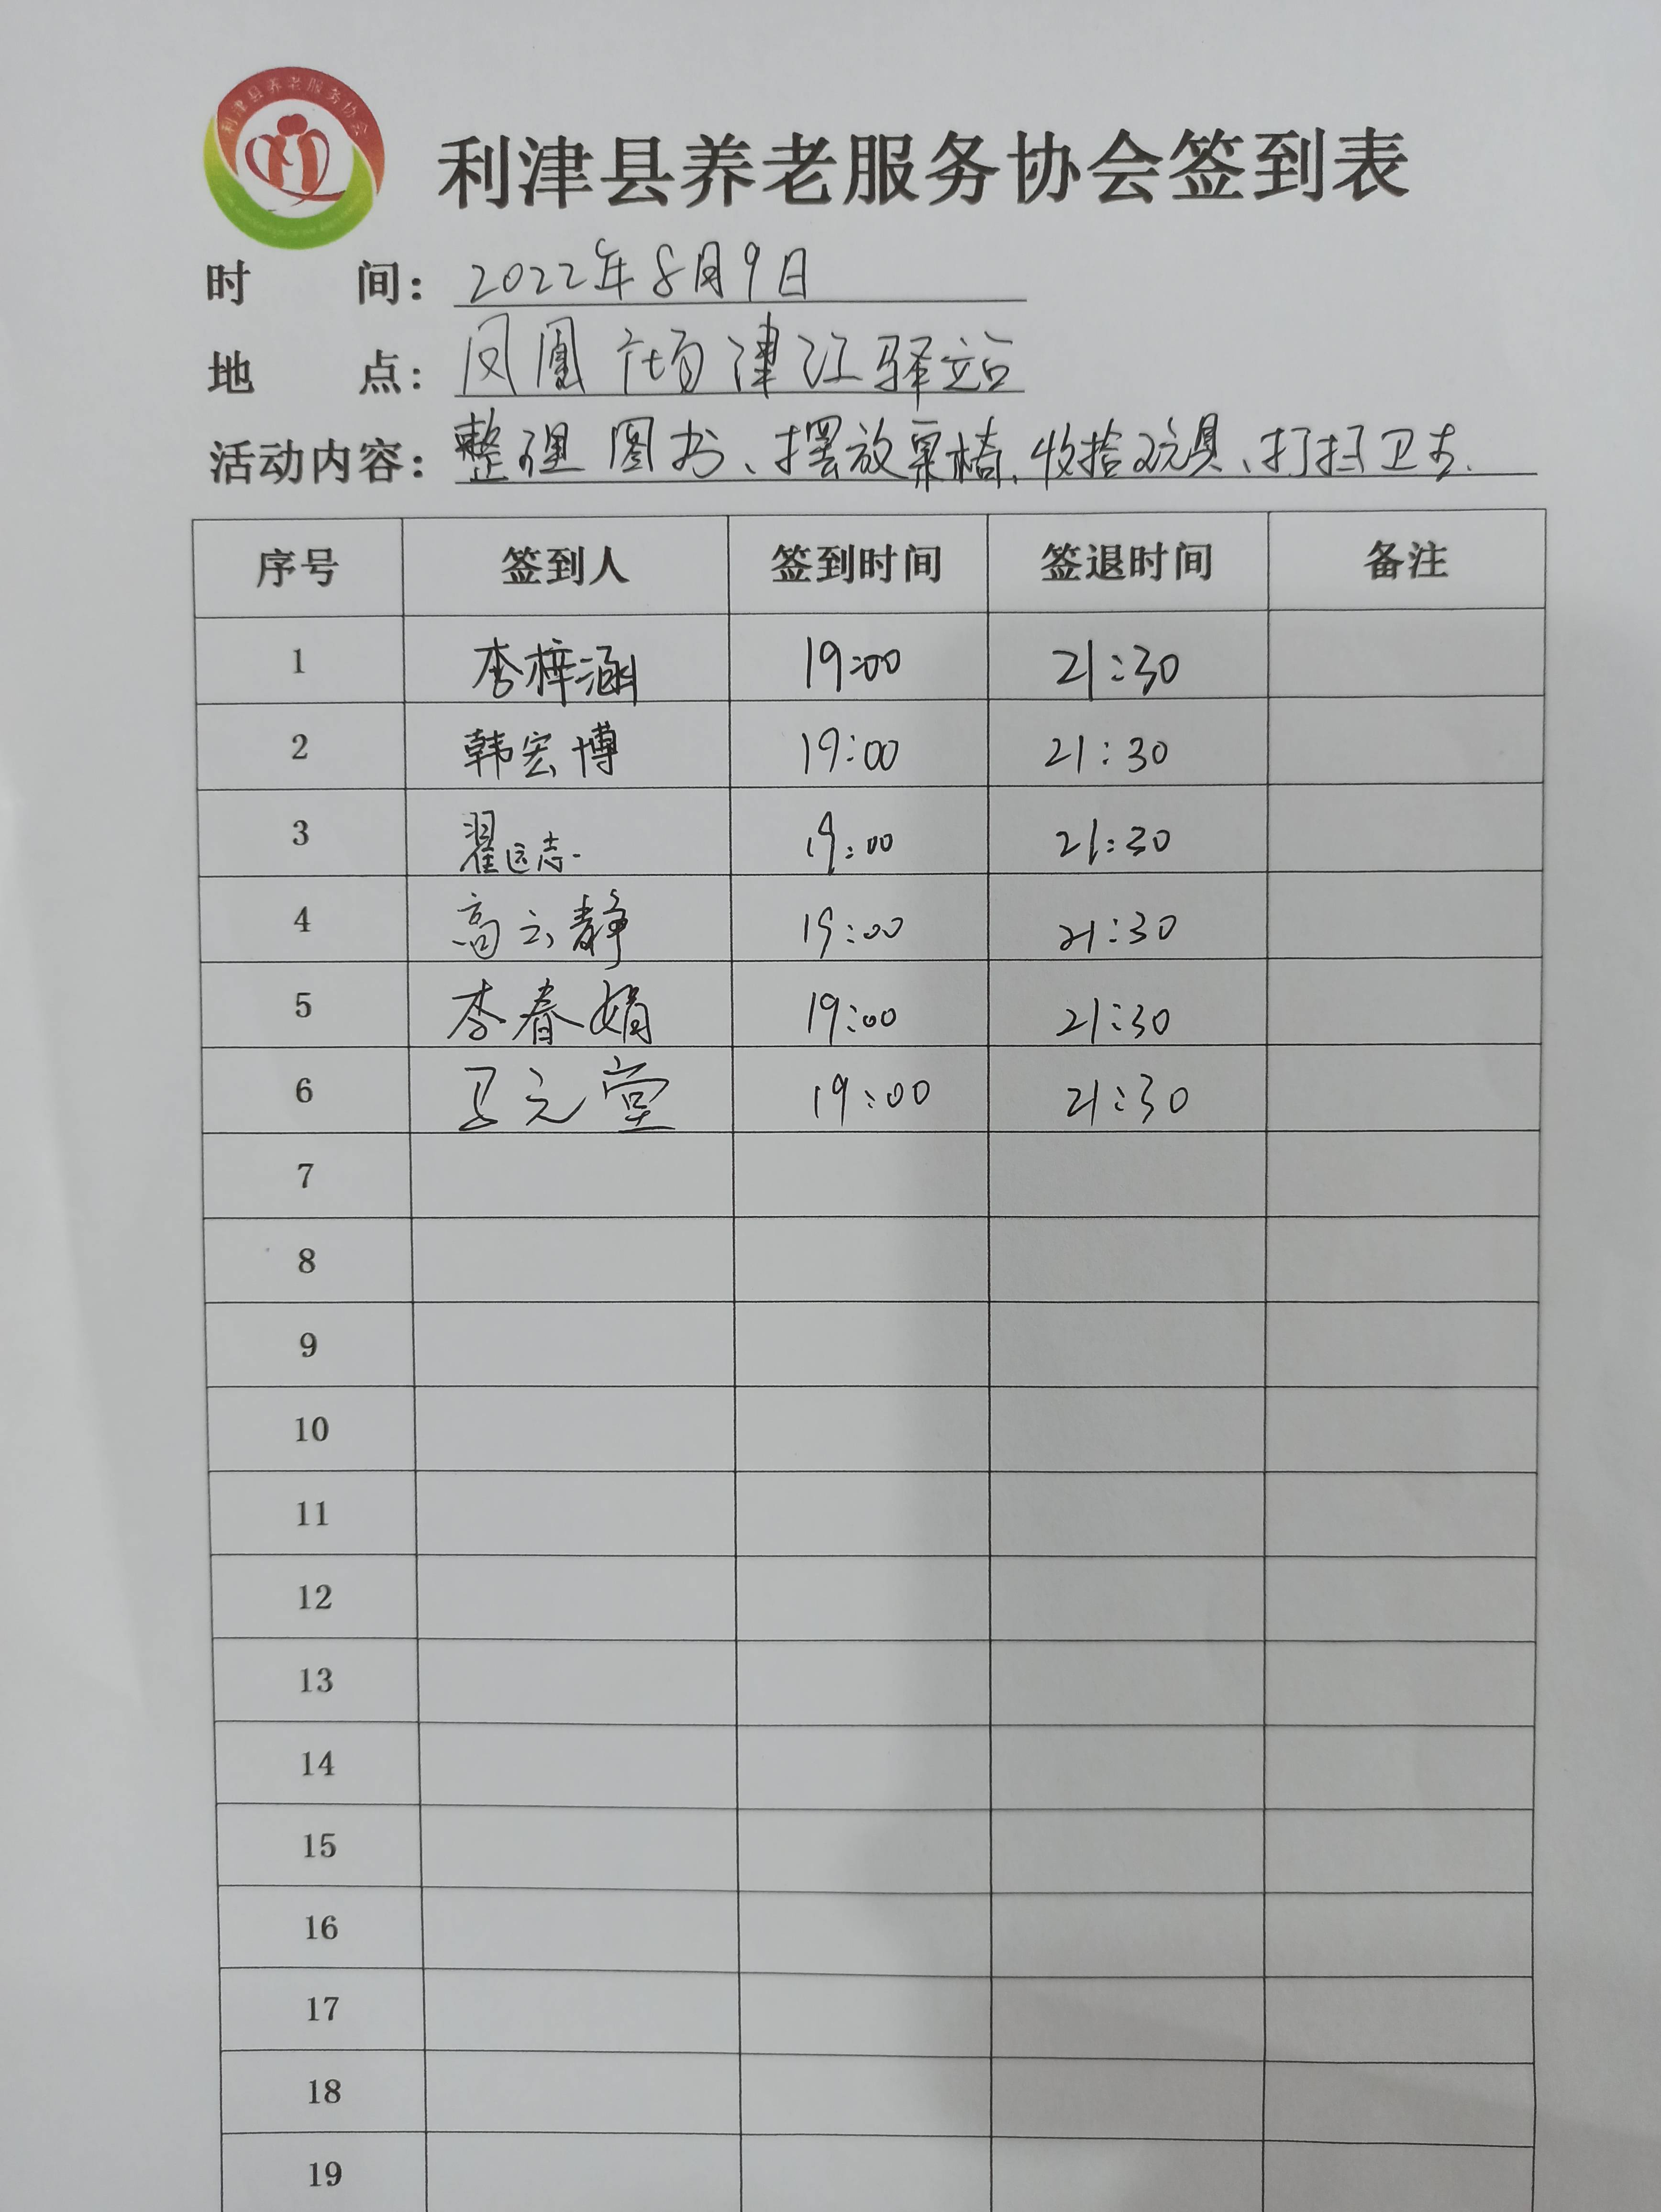 利津县养老服务协会
利津县养老服务协会签到表
时 间：2022年8月9日
地 点：凤凰广场津江驿站
活动内容：整理图书、摆放桌椅、收拾玩具、打扫卫生.
序号 签到人 签到时间 签退时间 备注
1 李梓涵 19:00 21:30
2 韩宏博 19:00 21:30
3 翟远志 19:00 21:30
4 高云静 19:00 21:30
5 李春娟 19:00 21:30
6 元堂 19:00 21:30
7
8
9
10
11
12
13
14
15
16
17
18
19